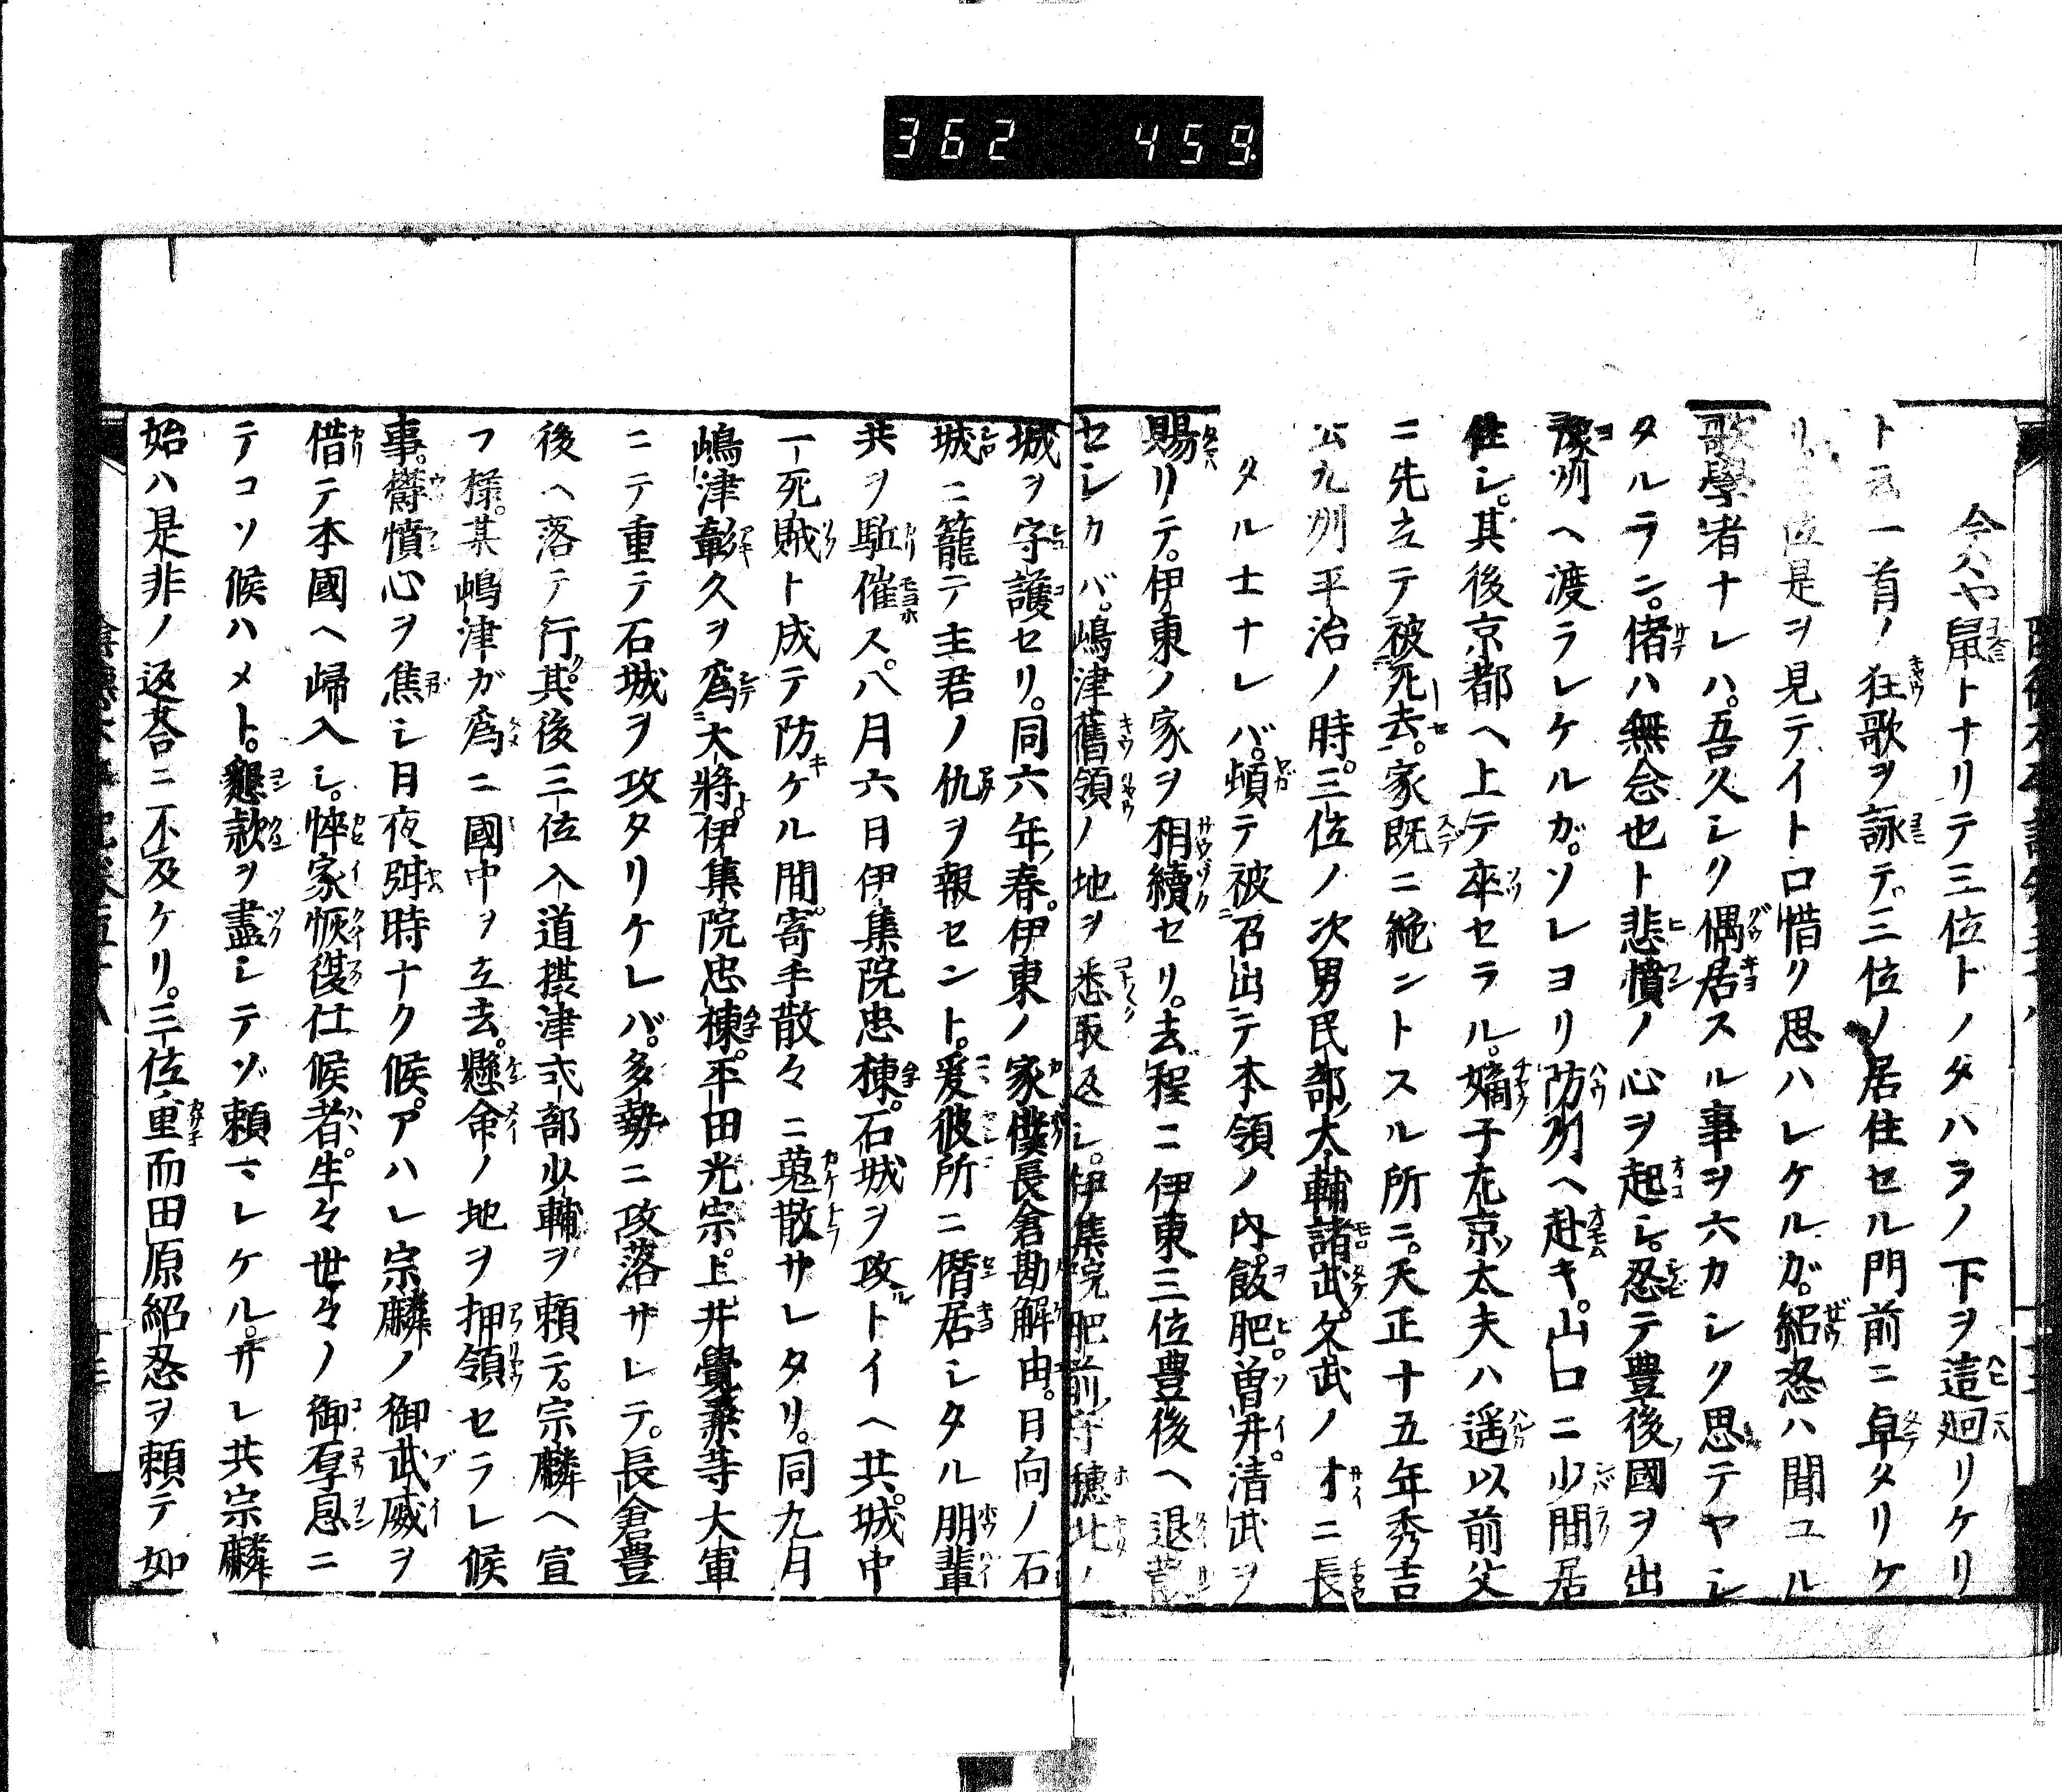 362 459.
今ハヤ鼠トナリテ三位トノタハラノ下ヲ這廻リケリ
ト云一首ノ狂歌ヲ詠テ。三位ノ居住セル門前ニ卓タリケ
リ。三位是ヲ見テイト口惜ク思ハレケルガ。紹忍ハ聞ユル
歌學者ナレハ。吾久シク偶居スル事ヲ六カシク思テヤシ
タルラニ。偖ハ無念也ト悲憤ノ心ヲ起シ。忍テ豊後ノ國ヲ出
豫州ヘ渡ラレケルガ。ソレヨリ防州ヘ赴キ。山口ニ少間居
住シ。其後京都ヘ上テ卒セラル。嫡子左京太夫ハ遥以前父
ニ先立テ被死去。家既ニ絶ントスル所ニ。天正十五年秀吉
公九州平治ノ時。三位ノ次男民部大輔諸武。文武ノ才ニ長
タル士ナレバ。頓テ被召出テ本領ノ内。飫肥。曽井。清武ヲ
賜リテ。伊東ノ家ヲ相續セリ。去程ニ伊東三位豊後ヘ退
セシカバ。嶋津舊領ノ地ヲ悉取返シ。伊集院肥前守穂北ノ
城ヲ守護セリ。同六年春。伊東ノ家僕長倉勘解由。日向ノ石
城ニ籠テ主君ノ仇ヲ報セント。爰彼所ニ僭居シタル朋輩
共ヲ駈催ス。八月六日伊集院忠棟。石城ヲ攻トイヘ共。城中
一死賊ト成テ防ケル間。寄手散々ニ蒐散サレタリ。同九月
嶋津彰久ヲ為大將。伊集院忠棟。平田光宗。上井覺兼等大軍
ニテ重テ石城ヲ攻タリケレバ。多勢ニ攻落サレテ。長倉豊
後ヘ落テ行。其後三位入道摂津式部少輔ヲ頼テ。宗麟ヘ宣
フ様。某嶋津ガ為ニ國中ヲ立去。懸命ノ地ヲ押領セラレ候
事。欝憤心ヲ焦シ日夜弭時ナク候。アハレ宗麟ノ御武威ヲ
借テ本國ヘ歸入シ。悴家恢復仕候者。生々世々ノ御厚恩ニ
テコソ候ハメト。懇款ヲ盡シテゾ頼マレケル。サレ共宗麟
始ハ是非ノ返荅ニ不及ケリ。三位重而田原紹忍ヲ頼テ如